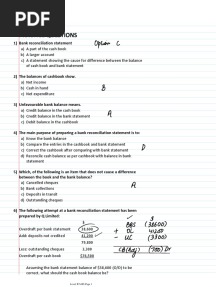 PDF
ONS
1) Bank reconciliation statement
Option C
a) A part of the cash book
b) A ledger account
c) A statement showing the cause for difference between the balance
of cash book and bank statement
2) The balances of cashbook show:
a) Net income
b) Cash in hand
B
c) Net expenditure
3) Unfavourable bank balance means.
a) Credit balance in the cash book
A
b) Credit balance in the bank statement
c) Debit balance in the cashbook
4) The main purpose of preparing a bank reconciliation statement is to:
a) Know the bank balance
b) Compare the entries in the cashbook and bank statement
c) Correct the cashbook after comparing with bank statement
D
d) Reconcile cashbook as per cashbook with balance in bank
statement
5) Which, of the following is an item that does not cause a difference
between the bank and the bank balance?
a) Cancelled cheques
A
b) Bank collections
c) Deposits in transit
d) Outstanding cheques
6) The following attempt at a bank reconciliation statement has been
prepared by Q Limited:
$
$
Overdraft per bank statement 38,600
BBS (38600)
Add: deposits not credited 41,200
+ DC 41200
79,800
- UC (3300)
Less: outstanding cheques 3,300
Overdraft per cash book $76,500
CB (Adj) (700) Dr
Assuming the bank statement balance of $38,600 (O/D) to be
correct, what should the cash book balance be?